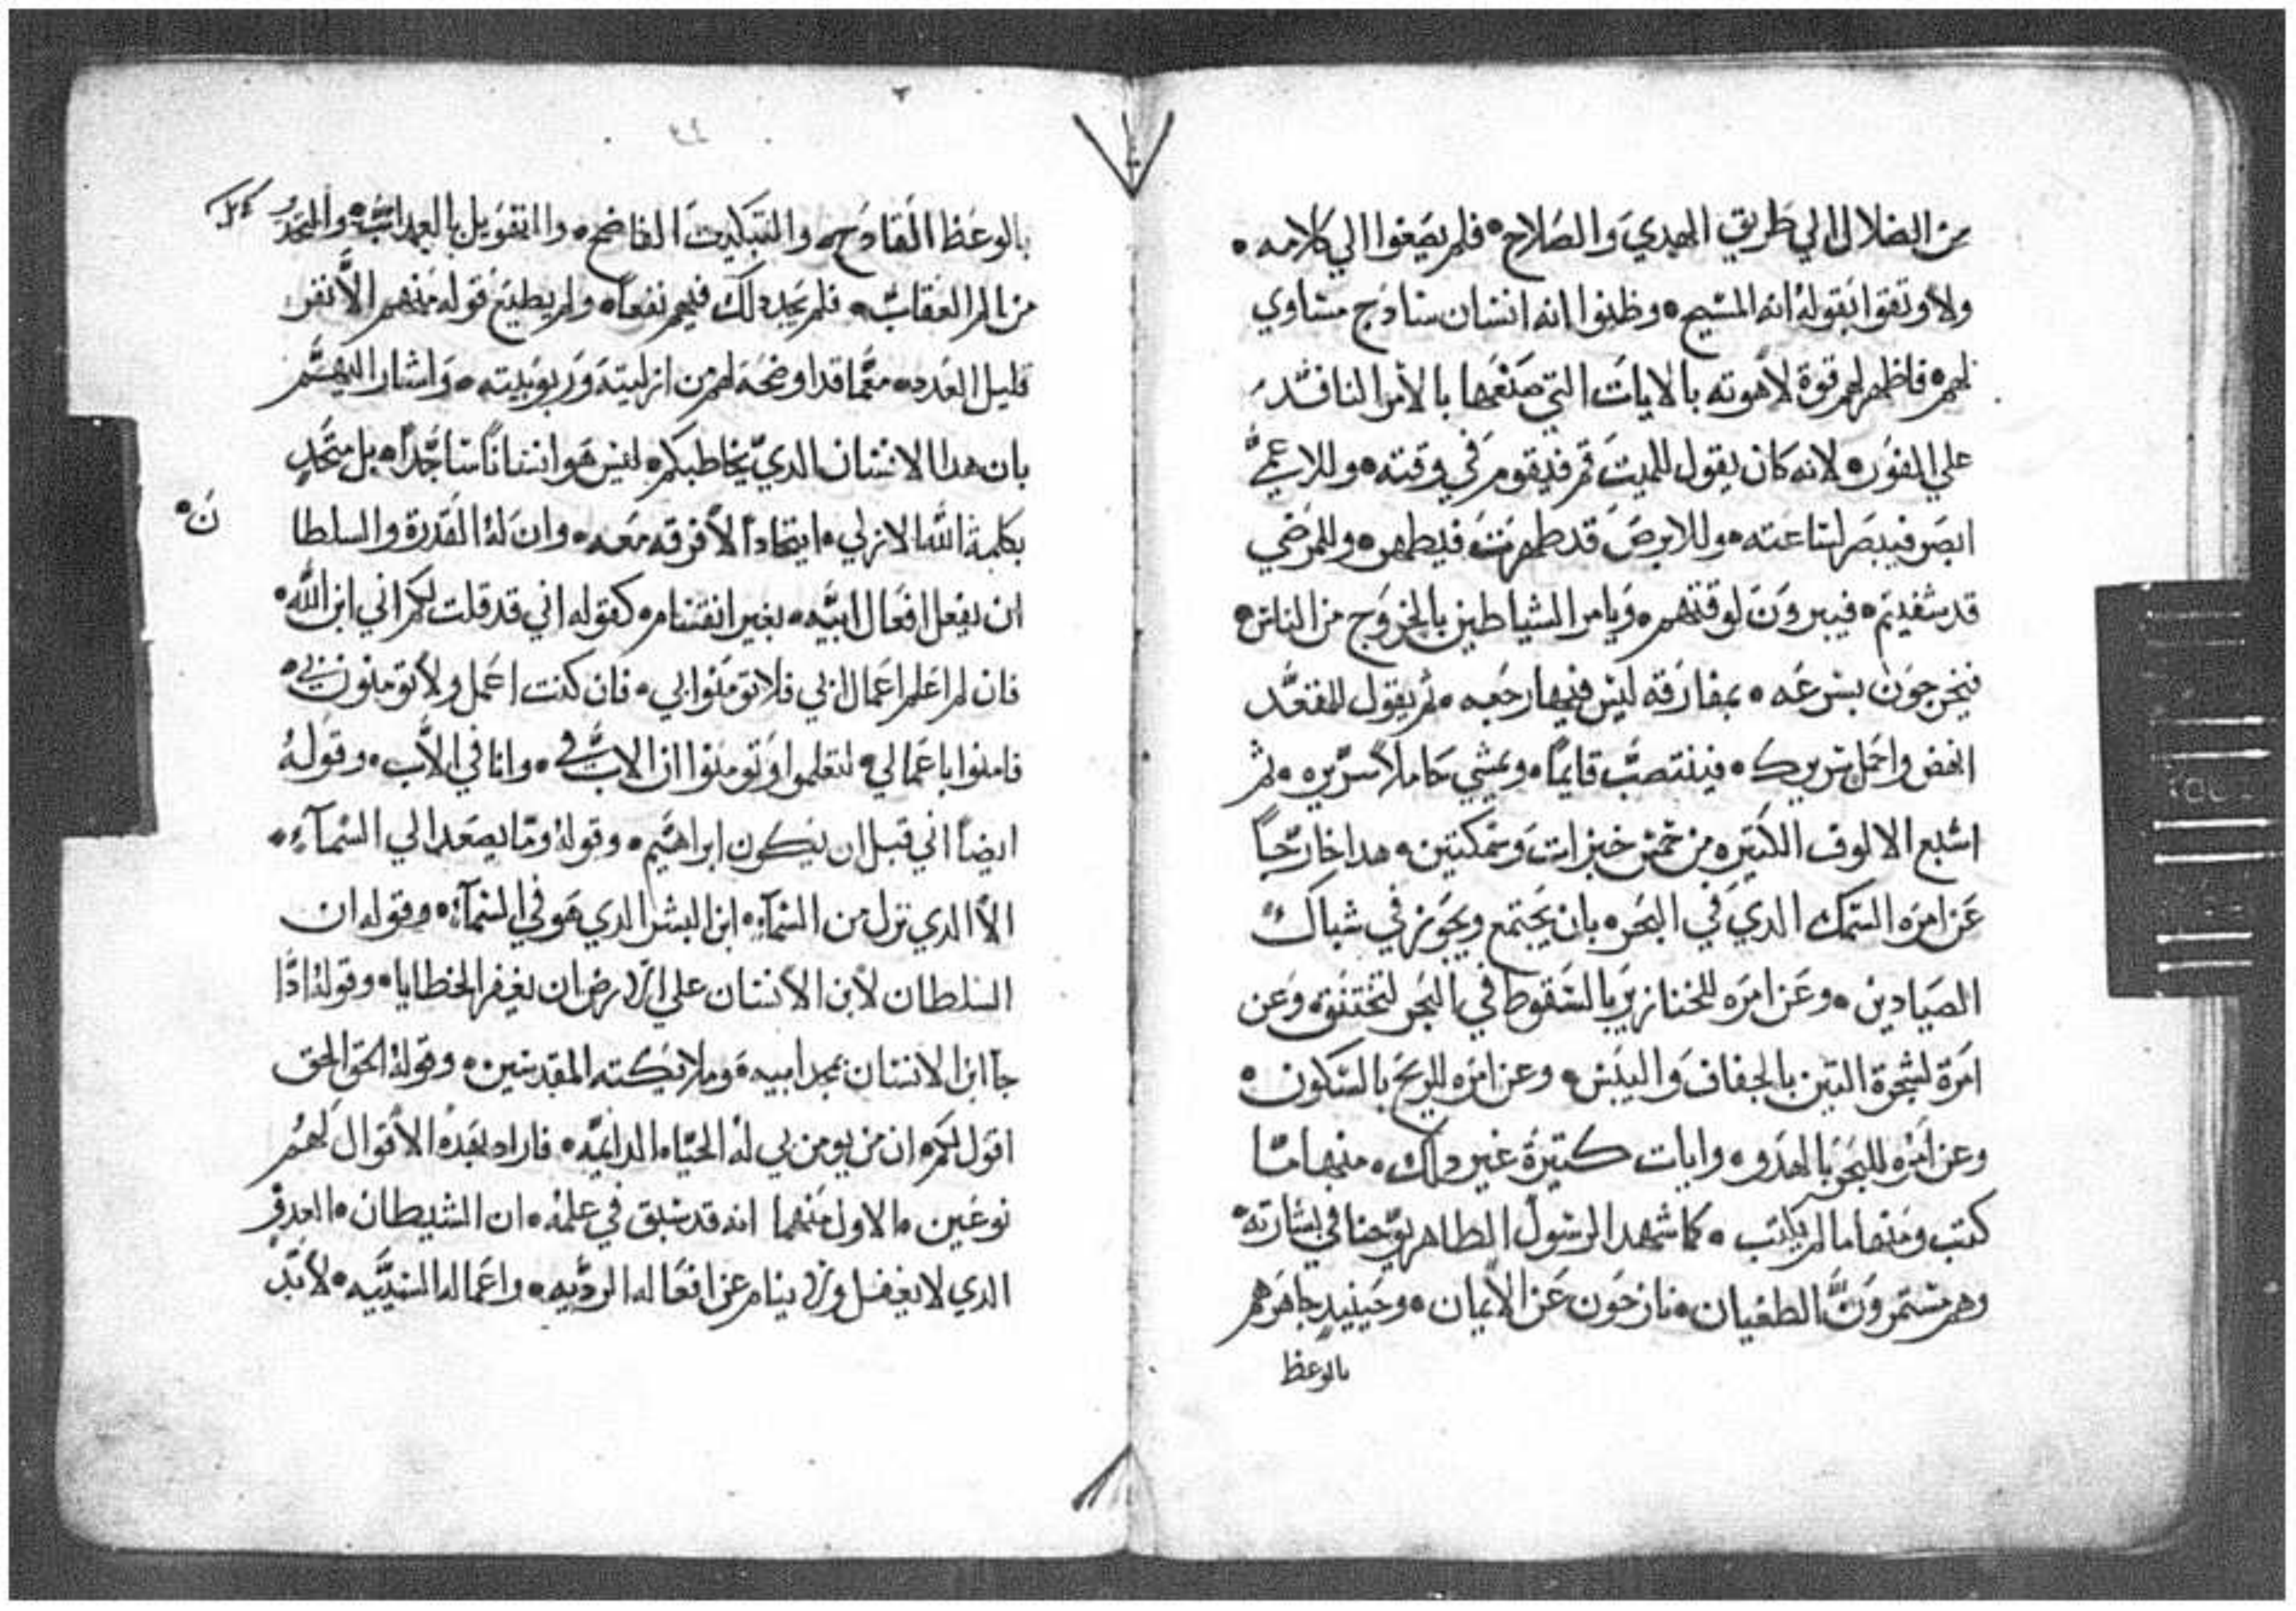 من الضلال الي طريق الهدي والصلاح • فلم يصغوا الي كلامه •
ولا وتقوا بقوله انه المسيح • وظنوا انه انسان سادج مساوي
لهم • فاظهر لهم قوة لاهوته بالايات التي صنعها بالأمر النافد
علي الفور • لانه كان يقول للميت قم فيقوم في وقته • وللاعمي
ابصر فيبصر لساعته • وللابرص قد طهرت فيطهر • وللمرضي
قد شفيتم • فيبرون لوقتهم • ويامر الشياطين بالخروج من الناس •
فيخرجون بسرعه • بمفارقه ليس فيها رجعه • ثم يقول للمقعد
انهض واحمل سريرك • فينتصب قايما • ويمشي حاملاً سريره • ثم
اشبع الالوف الكتيره من خمس خبزات وسمكتين • هدا خارجاً
عن امره السمك الدي في البحر • بان يجتمع ويحوز في شباك
الصيادين • وعن امره للخنازير بالسقوط في البحر لتختنق • وعن
امرة لشجرة التين بالجفاف واليبس • وعن امره للريح بالسكون •
وعن امره للبحر بالهدو • وايات كتيرة غير دلك • منها ما
كتب ومنها ما لم يكتب • كما شهد الرسول الطاهر يوحنا في بشارته •
وهم مستمرون الطغيان • نازحون عن الأيمان • وحينيد جاهرهم
بالوعظ
بالوعظ القادح • والتبكيت الفاضح • والتهويل بالعداب • والتحدير
من الم العقاب • فلم يجد دلك فيهم نفعاً • ولم يطيع قوله منهم الأ نفر
قليل العدد • معما قد اوضحه لهم من ازليته وربوبيته • واشار اليهم
بان هدا الانسان الدي يخاطبكم • ليس هو انساناً ساجداً • بل متحد
بكلمة الله الازلي • ايتحاداً لأ فرقه معه • وان له القدرة والسلطا
ن •
ان يفعل افعال ابيه • بغير انقسام • كقوله اني قد قلت لكم اني ابن الله •
فان لم اعلم اعمال ابي فلا تومنوا بي • فان كنت اعمل ولأ تومنون بي •
فامنوا باعمالي • لتعلموا وتومنوا ان الاب في • وانا في الأب • وقوله
ايضاً اني قبل ان يكون ابراهيم • وقوله وما يصعد الي السمآء •
الأ الدي نزل من السمآء • ابن البشر الدي هو في السمآء • وقوله ان
السلطان لأبن الأنسان علي الارض ان يغفر الخطايا • وقوله ادا
جآ ابن الانسان بمجد ابيه • وملايكته المقدسين • وقوله الحق الحق
اقول لكم • ان من يومن بي له الحياه الدايميه • فاراد بهده الأقوال لهم
نوعين • الاول منهما انه قد سبق في علمه • ان الشيطان • العدو
الدي لا يغفل ولا ينام عن افعاله الرديه • واعماله السيييه • لأبد